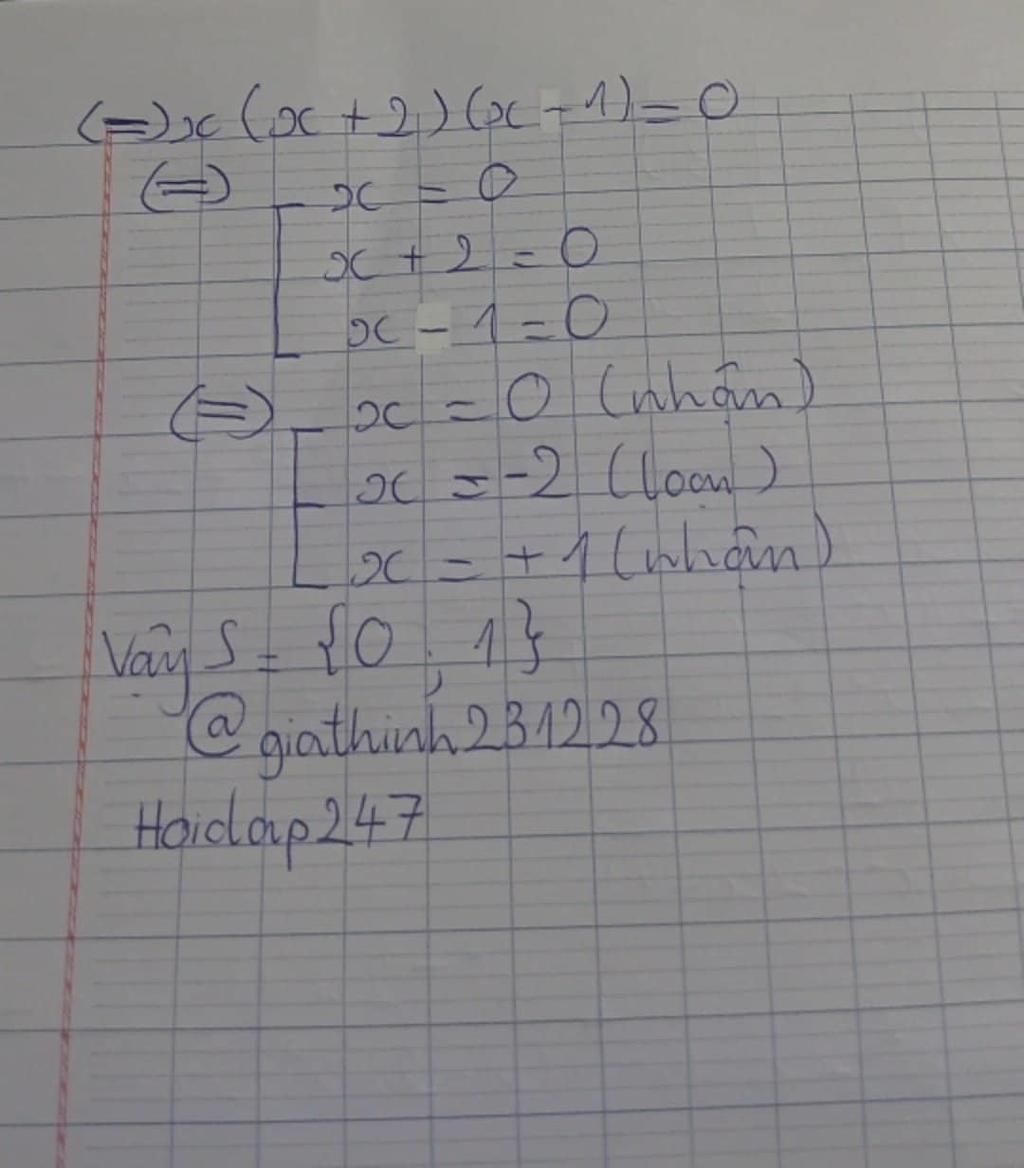 (=) x (x + 2) (x - 1) = 0
(=) [ x = 0
x + 2 = 0
x - 1 = 0
(=) [ x = 0 (nhận)
x = -2 (loại)
x = +1 (nhận)
Vậy S = {0 ; 1}
@giathinh231228
Hoidap247